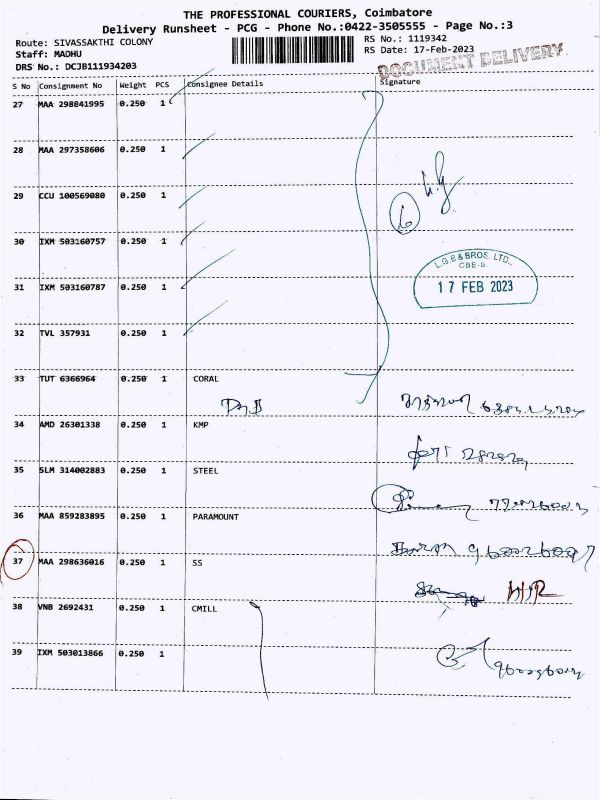 THE PROFESSIONAL COURIERS, Coimbatore
Delivery Runsheet - PCG - Phone No.:0422-3505555 - Page No.:3
Route: SIVASSAKTHI COLONY
RS No.: 1119342
Staff: MADHU
RS Date: 17-Feb-2023
DRS No.: DCJB111934203
DOCUMENT DELIVERY
S No Consignment No Weight PCS Consignee Details Signature
27 MAA 298841995 0.250 1
28 MAA 297358606 0.250 1
29 CCU 100569080 0.250 1
30 IXM 503160757 0.250 1
L.G.B & BROS. LTD.,
CBE-6.
17 FEB 2023
31 IXM 503160787 0.250 1
32 TVL 357931 0.250 1
33 TUT 6366964 0.250 1 CORAL
34 AMD 26301338 0.250 1 KMP
35 SLM 314002883 0.250 1 STEEL
36 MAA 859283895 0.250 1 PARAMOUNT
37 MAA 298636016 0.250 1 SS
38 VNB 2692431 0.250 1 CMILL
39 IXM 503013866 0.250 1